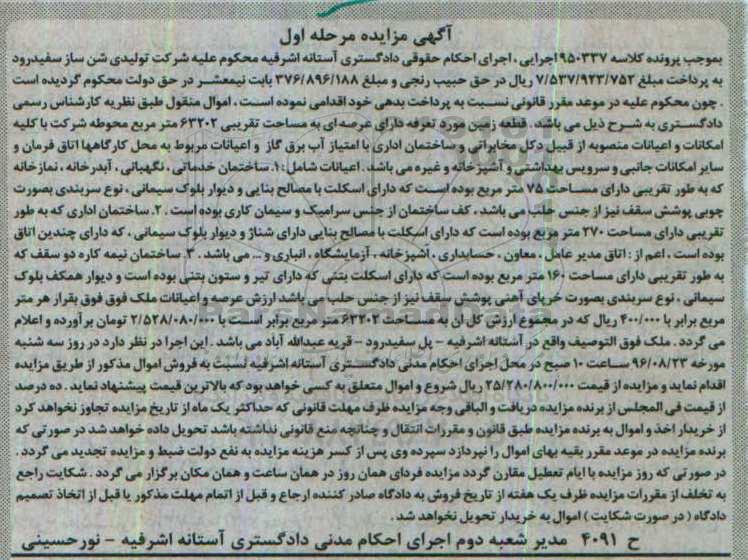 آگهی مزایده مرحله اول
بموجب پرونده کلاسه ۹۵۰۳۳۷ اجرایی ، اجرای احکام حقوقی دادگستری آستانه اشرفیه محکوم علیه شرکت تولیدی شن ساز سفیدرود
به پرداخت مبلغ ۷/۵۳۷/۹۲۳/۷۵۲ ریال در حق حبیب رنجی و مبلغ ۳۷۶/۸۹۶/۱۸۸ بابت نیمعشر در حق دولت محکوم گردیده است
. چون محکوم علیه در موعد مقرر قانونی نسبت به پرداخت بدهی خود اقدامی ننموده است ، اموال منقول طبق نظریه کارشناس رسمی
دادگستری به شرح ذیل می باشد . قطعه زمین مورد تعرفه دارای عرصه ای به مساحت تقریبی ۶۳۲۰۲ متر مربع محوطه شرکت با کلیه
امکانات و اعیانات منصوبه از قبیل دکل مخابراتی و ساختمان اداری با امتیاز آب برق گاز و اعیانات مربوط به محل کارگاهها اتاق فرمان و
سایر امکانات جانبی و سرویس بهداشتی و آشپزخانه و غیره می باشد . اعیانات شامل : ۱. ساختمان خدماتی ، نگهبانی ، آبدرخانه ، نمازخانه
که به طور تقریبی دارای مساحت ۷۵ متر مربع بوده است که دارای اسکلت با مصالح بنایی و دیوار بلوک سیمانی ، نوع سربندی بصورت
چوبی پوشش سقف نیز از جنس حلب می باشد . کف ساختمان از جنس سرامیک و سیمان کاری بوده است . ۲. ساختمان اداری که به طور
تقریبی دارای مساحت ۲۷۰ متر مربع بوده است که دارای اسکلت با مصالح بنایی دارای شناژ و دیوار بلوک سیمانی ، که دارای چندین اتاق
بوده است ، اعم از : اتاق مدیر عامل ، معاون ، حسابداری ، آشپزخانه ، آزمایشگاه ، انباری و ... می باشد . ۳. ساختمان نیمه کاره دو سقف که
به طور تقریبی دارای مساحت ۱۶۰ متر مربع بوده است که دارای اسکلت بتنی که دارای تیر و ستون بتنی بوده است و دیوار همکف بلوک
سیمانی ، نوع سربندی بصورت خرپای آهنی پوشش سقف نیز از جنس حلب می باشد ارزش عرصه و اعیانات ملک فوق فوق بقرار هر متر
مربع برابر با ۴۰۰/۰۰۰ ریال که در مجموع ارزش کل ان به مساحت ۶۳۲۰۲ متر مربع برابر است با ۲/۵۲۸/۰۸۰/۰۰۰ تومان برآورده و اعلام
می گردد . ملک فوق التوصیف واقع در آستانه اشرفیه - پل سفیدرود - قریه عبدالله آباد می باشد . این اجرا در نظر دارد در روز سه شنبه
مورخه ۹۶/۰۸/۲۳ ساعت ۱۰ صبح در محل اجرای احکام مدنی دادگستری آستانه اشرفیه نسبت به فروش اموال مذکور از طریق مزایده
اقدام نماید و مزایده از قیمت ۲۵/۲۸۰/۸۰۰/۰۰۰ ریال شروع و اموال متعلق به کسی خواهد بود که بالاترین قیمت پیشنهاد نماید . ده درصد
از قیمت فی المجلس از برنده مزایده دریافت و الباقی وجه مزایده ظرف مهلت قانونی که حداکثر یک ماه از تاریخ مزایده تجاوز نخواهد کرد
از خریدار اخذ و اموال به برنده مزایده طبق قانون و مقررات انتقال و چنانچه منع قانونی نداشته باشد تحویل داده خواهد شد در صورتی که
برنده مزایده در موعد مقرر بقیه بهای اموال را نپردازد سپرده وی پس از کسر هزینه مزایده به نفع دولت ضبط و مزایده تجدید می گردد .
در صورتی که روز مزایده با ایام تعطیل مقارن گردد مزایده فردای همان روز در همان ساعت و همان مکان برگزار می گردد . شکایت راجع
به تخلف از مقررات مزایده ظرف یک هفته از تاریخ فروش به دادگاه صادر کننده ارجاع و قبل از اتمام مهلت مذکور یا قبل از اتخاذ تصمیم
دادگاه ( در صورت شکایت ) اموال به خریدار تحویل نخواهد شد .
ح ۴۰۹۱ مدیر شعبه دوم اجرای احکام مدنی دادگستری آستانه اشرفیه - نورحسینی